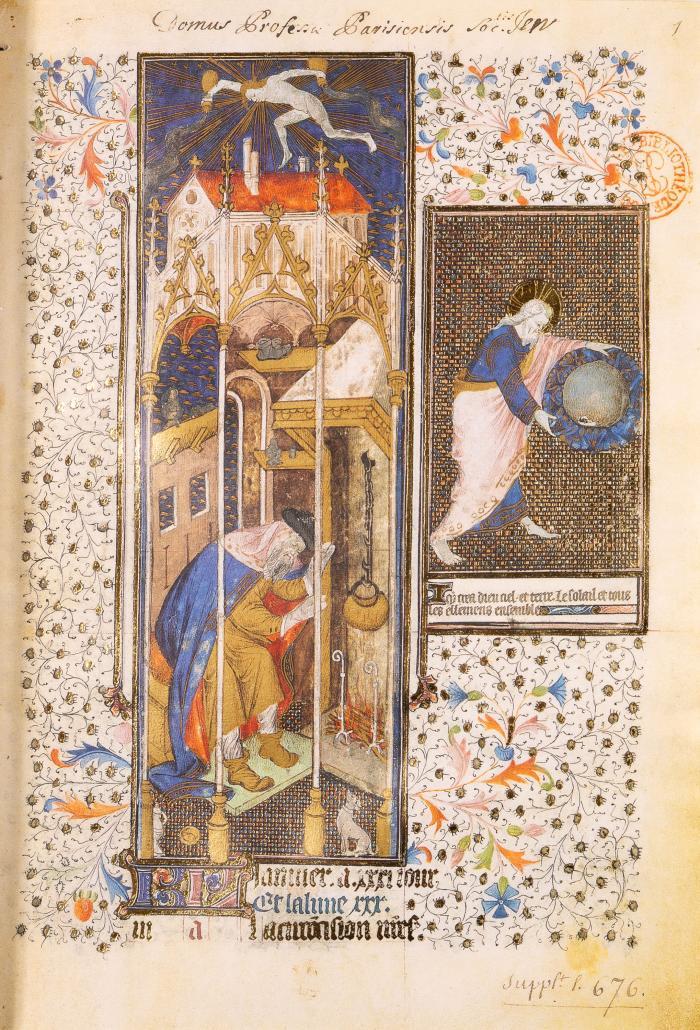 Domus Professæ Parisiensis Soc. Jesu
1
Icy crea dieu ciel et terre. Le solail et tous
les ellemens ensemble
KL Janvier. a. xxxi iour
Et la lune xxx.
iii a La circoncision
Suppl. l. 676.